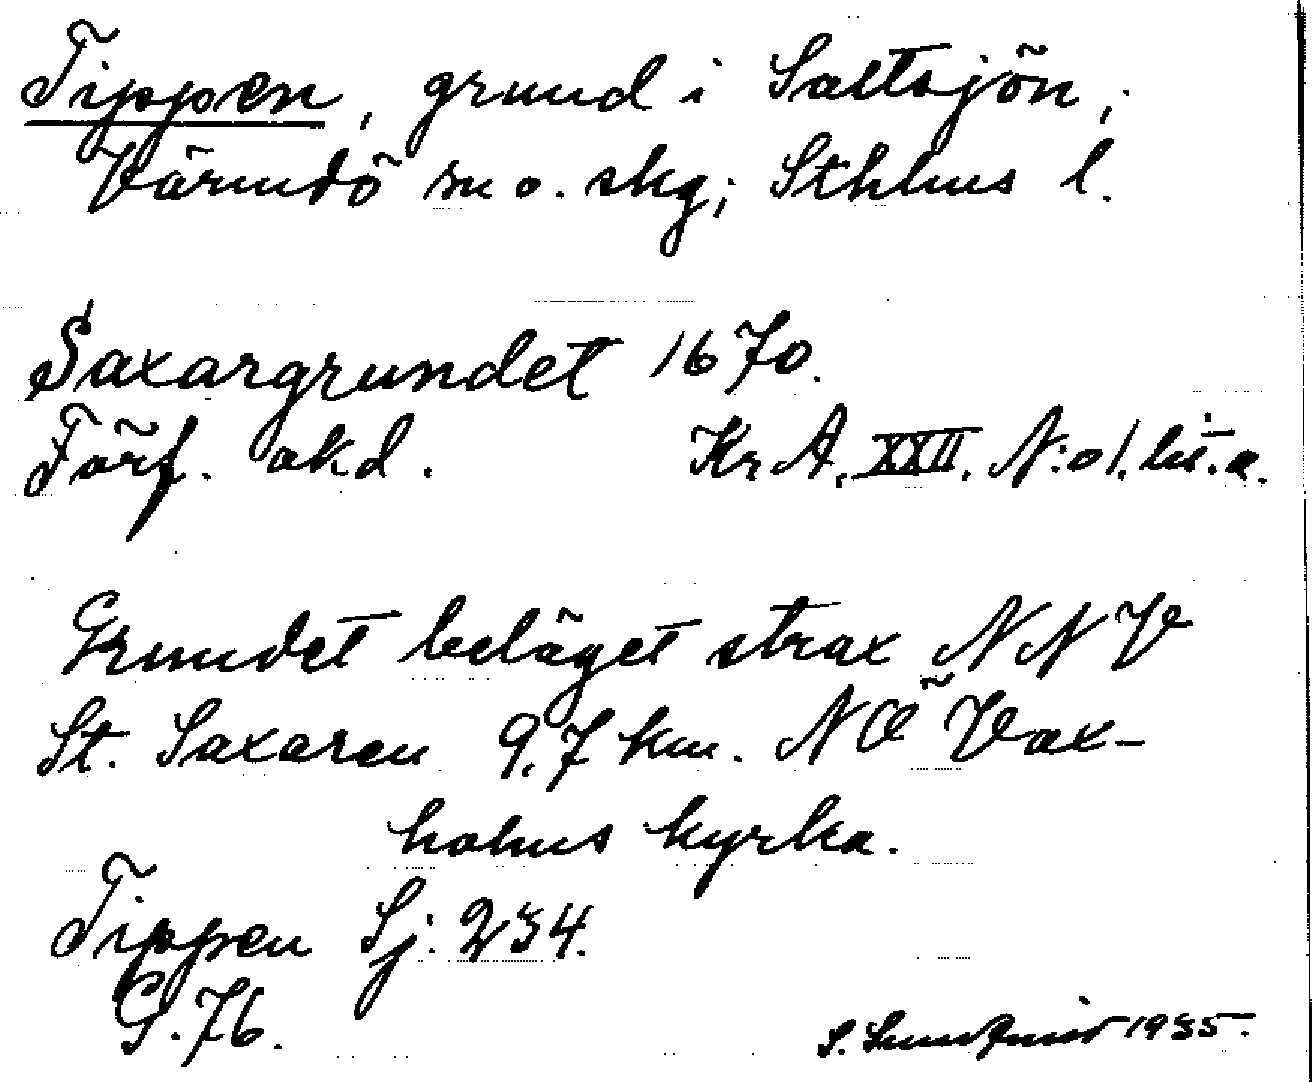 Tippen, grund i Saltsjön,
Värmdö sn o. skg; Sthlms l.
Saxargrundet 1670.
Förf. okd. Kr A, XXII. N:o 1. lit. a.
Grundet beläget strax NNV
St. Saxaren 9,7 km. NÖ Vax-
holms kyrka.
Tippen Sj. 234.
G. 76.
S. 1935.